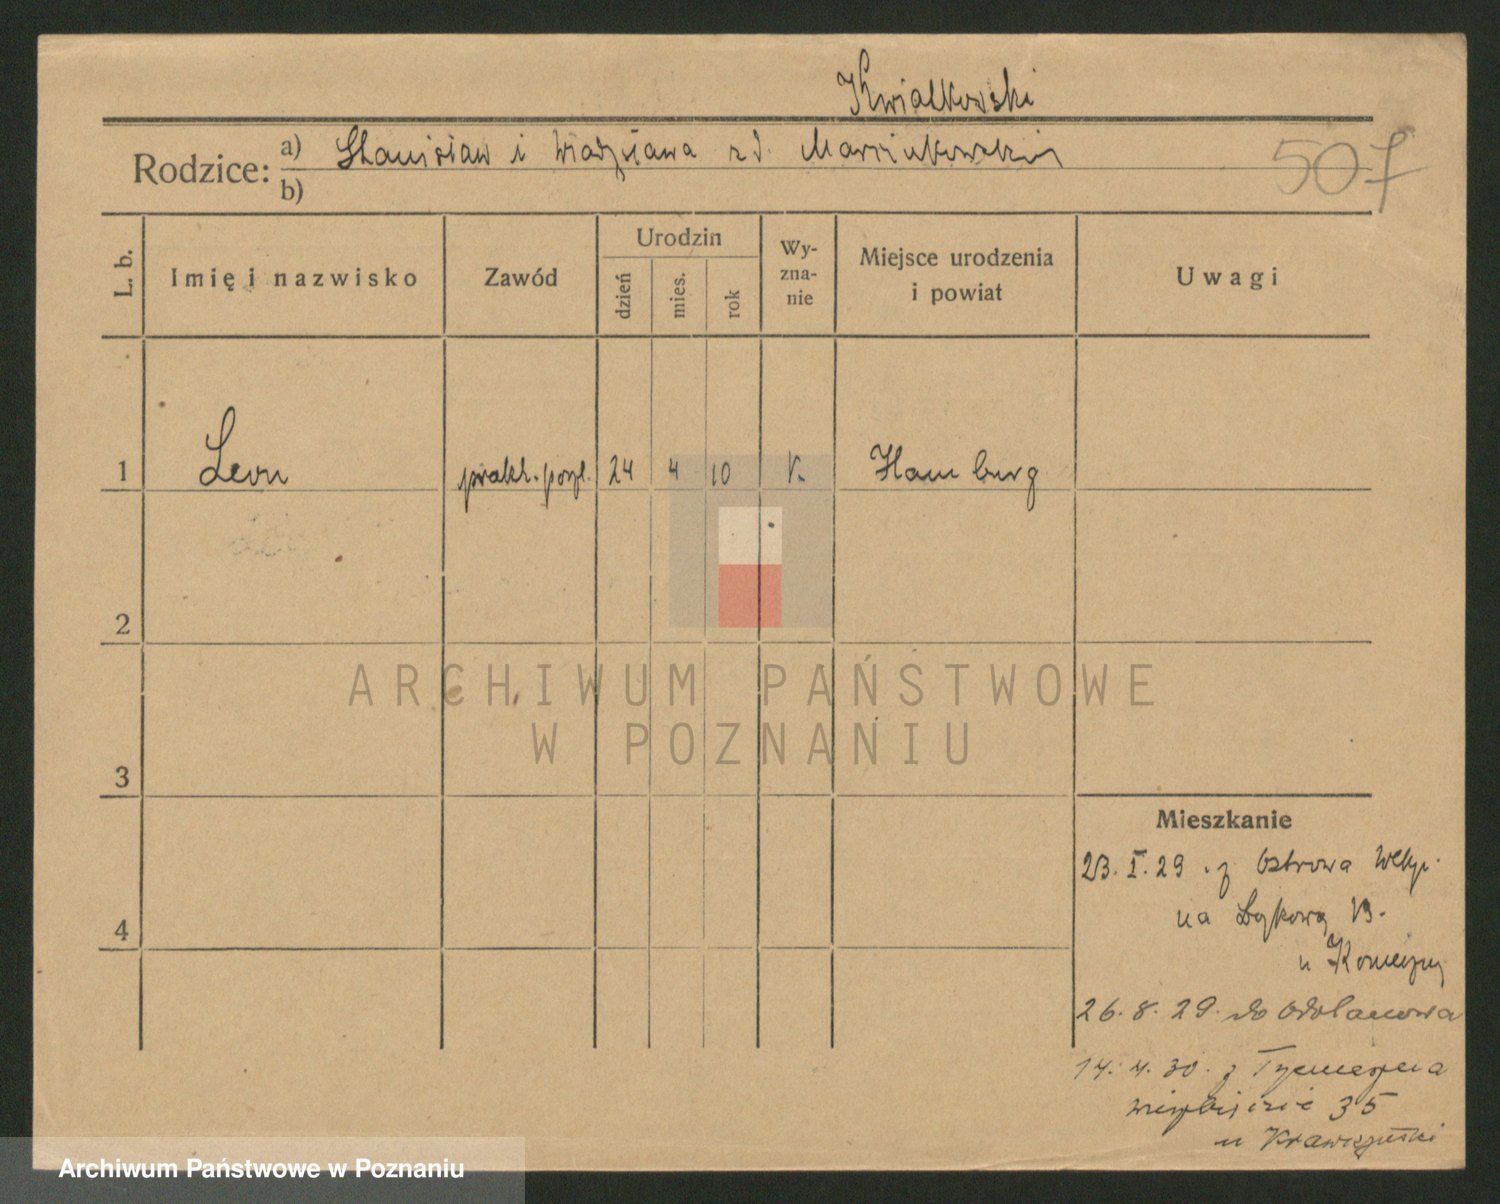 Kwiatkowski
Rodzice: a) Stanisław i Władysława z d. Marcinkowskich
b)
507
L. b.
Imię i nazwisko
Zawód
Urodzin
dzień
mies.
rok
Wy-
zna-
nie
Miejsce urodzenia
i powiat
Uwagi
1 Leon prakt. 24 4 10 K. Hamburg
2
3
4
ARCHIWUM PAŃSTWOWE
W POZNANIU
Mieszkanie
23. I. 29. z Ostrowa Wlkp.
na 13.
u
26. 8. 29. do Odolanowa
14. 4. 30. z
35
u
Archiwum Państwowe w Poznaniu